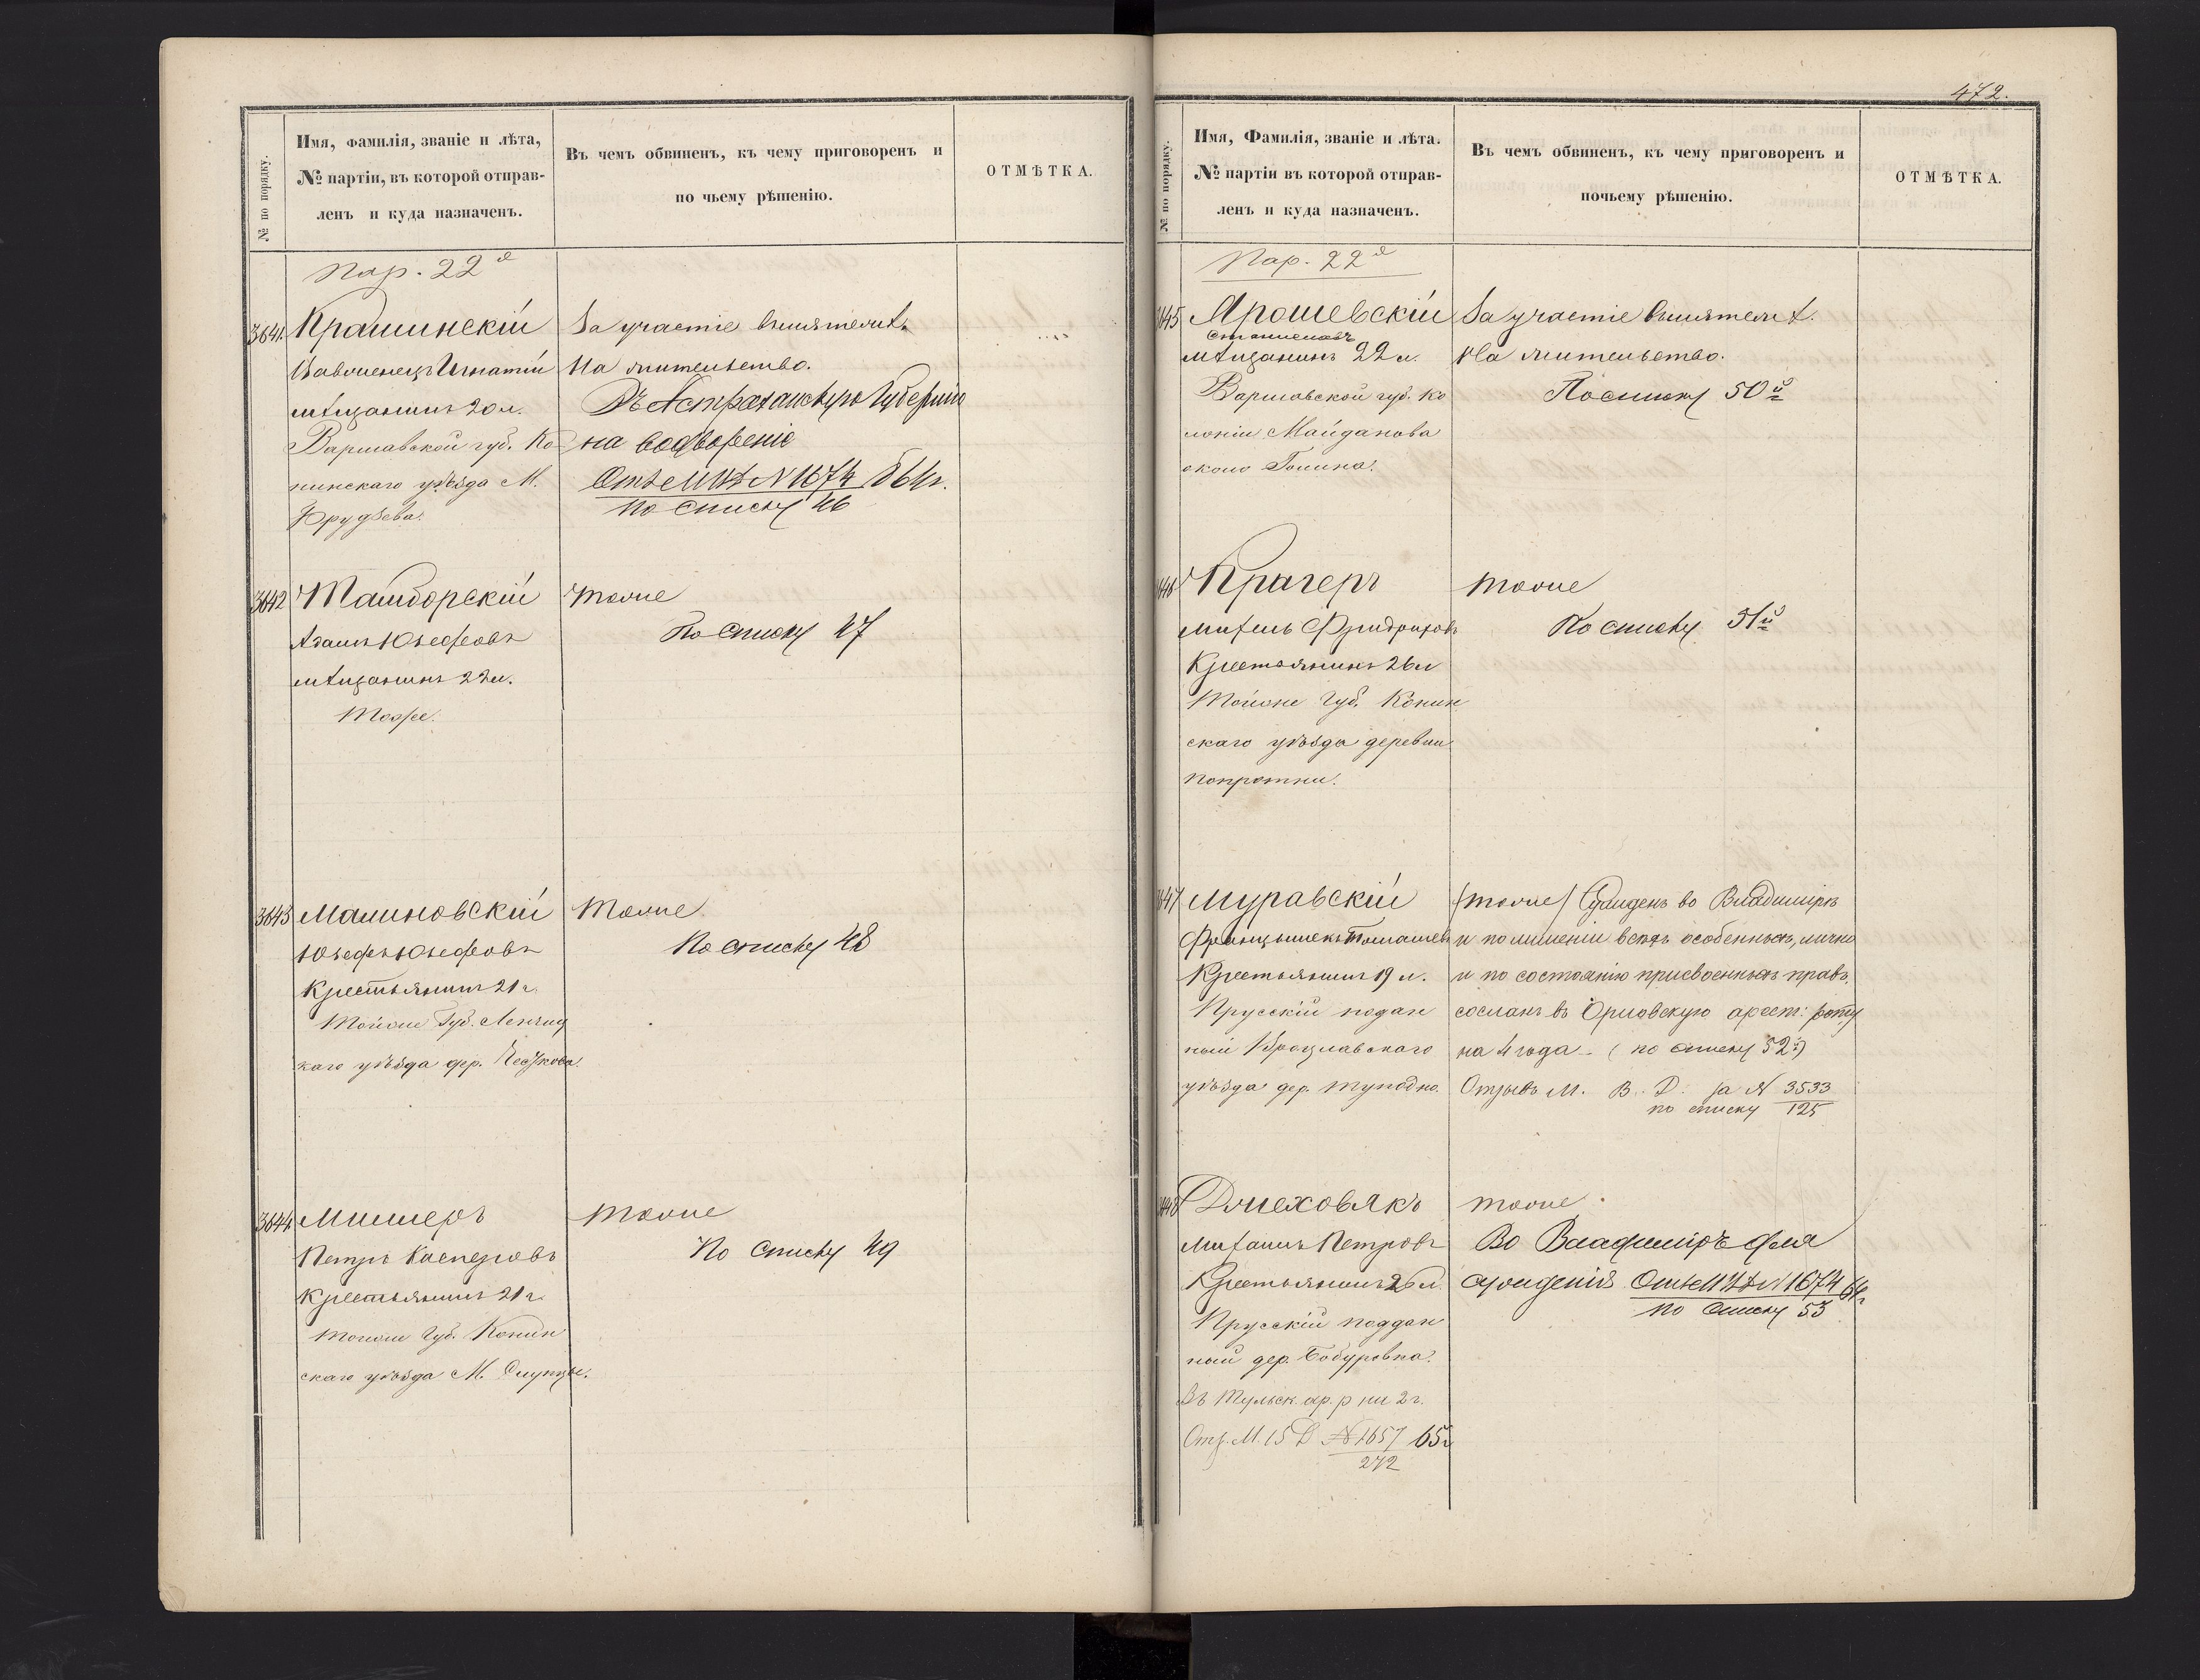 472.
№ по порядку.
Имя, фамилія, званіе и лѣта,
№ партіи, въ которой отправ-
ленъ и куда назначенъ.
Въ чемъ обвиненъ, къ чему приговоренъ и
по чьему рѣшенію.
ОТМѢТКА.
Пар. 22й
3641.
Крашинскій
Игнатій
мѣщанинъ 20 л.
Варшавской губ. Ко-
нинскаго уѣзда М.
За участіе въ мятежѣ
На жительство.
Въ Астраханскую Губернію
на водвореніе
№ 1674
По списку 46
3642
Адамъ Юзефовъ
мѣщанинъ 22 л.
Тоже.
тоже
По списку 47
3643
Малиновскій
Юзефъ Юзефовъ
Крестьянинъ 21 г.
Тойже Губ. Ленчиц
каго уѣзда дер.
Тоже
По списку 48
3644
Миллеръ
Петръ Касперовъ
Крестьянинъ 21 г.
Тойже Губ. Конин
скаго уѣзда М. Слупцы.
тоже
По списку 49
№ по порядку.
Имя, Фамилія, званіе и лѣта.
№ партіи въ которой отправ-
ленъ и куда назначенъ.
Въ чемъ обвиненъ, къ чему приговоренъ и
почьему рѣшенію.
ОТМѢТКА.
Пар. 22й
Ярошевскій
Станиславъ
мѣщанинъ 22 л.
Варшавской губ. Ко
лоніи Майданова
около Голина.
За участіе въ мятежѣ.
На жительство.
По списку 50й
Крагеръ
Фридриховъ
Крестьянинъ 26 л
Тойже Губ. Конин
скаго уѣзда деревни
тоже
По списку 51й
Муравскій
Францышекъ Томашевъ
Крестьянинъ 19 л.
Прусскій поддан
ный Вроцлавскаго
уѣзда дер.
(тоже) Сужденъ во Владимірѣ
и по лишеніи всѣхъ особенныхъ, лично
и по состоянію присвоенныхъ правъ,
сосланъ въ Орловскую арест: роту
на 4 года - (по списку 52й)
Отзывъ М. В. Д. за № 3533
по списку 125
Михаилъ Петровъ
Крестьянинъ 26 л.
Прусскій поддан
ный дер.
Въ Тульск. ар. р на 2 г.
№ 1657 65г
272
тоже.
Во Владиміръ для
сужденія № 1674 64г
по списку 53